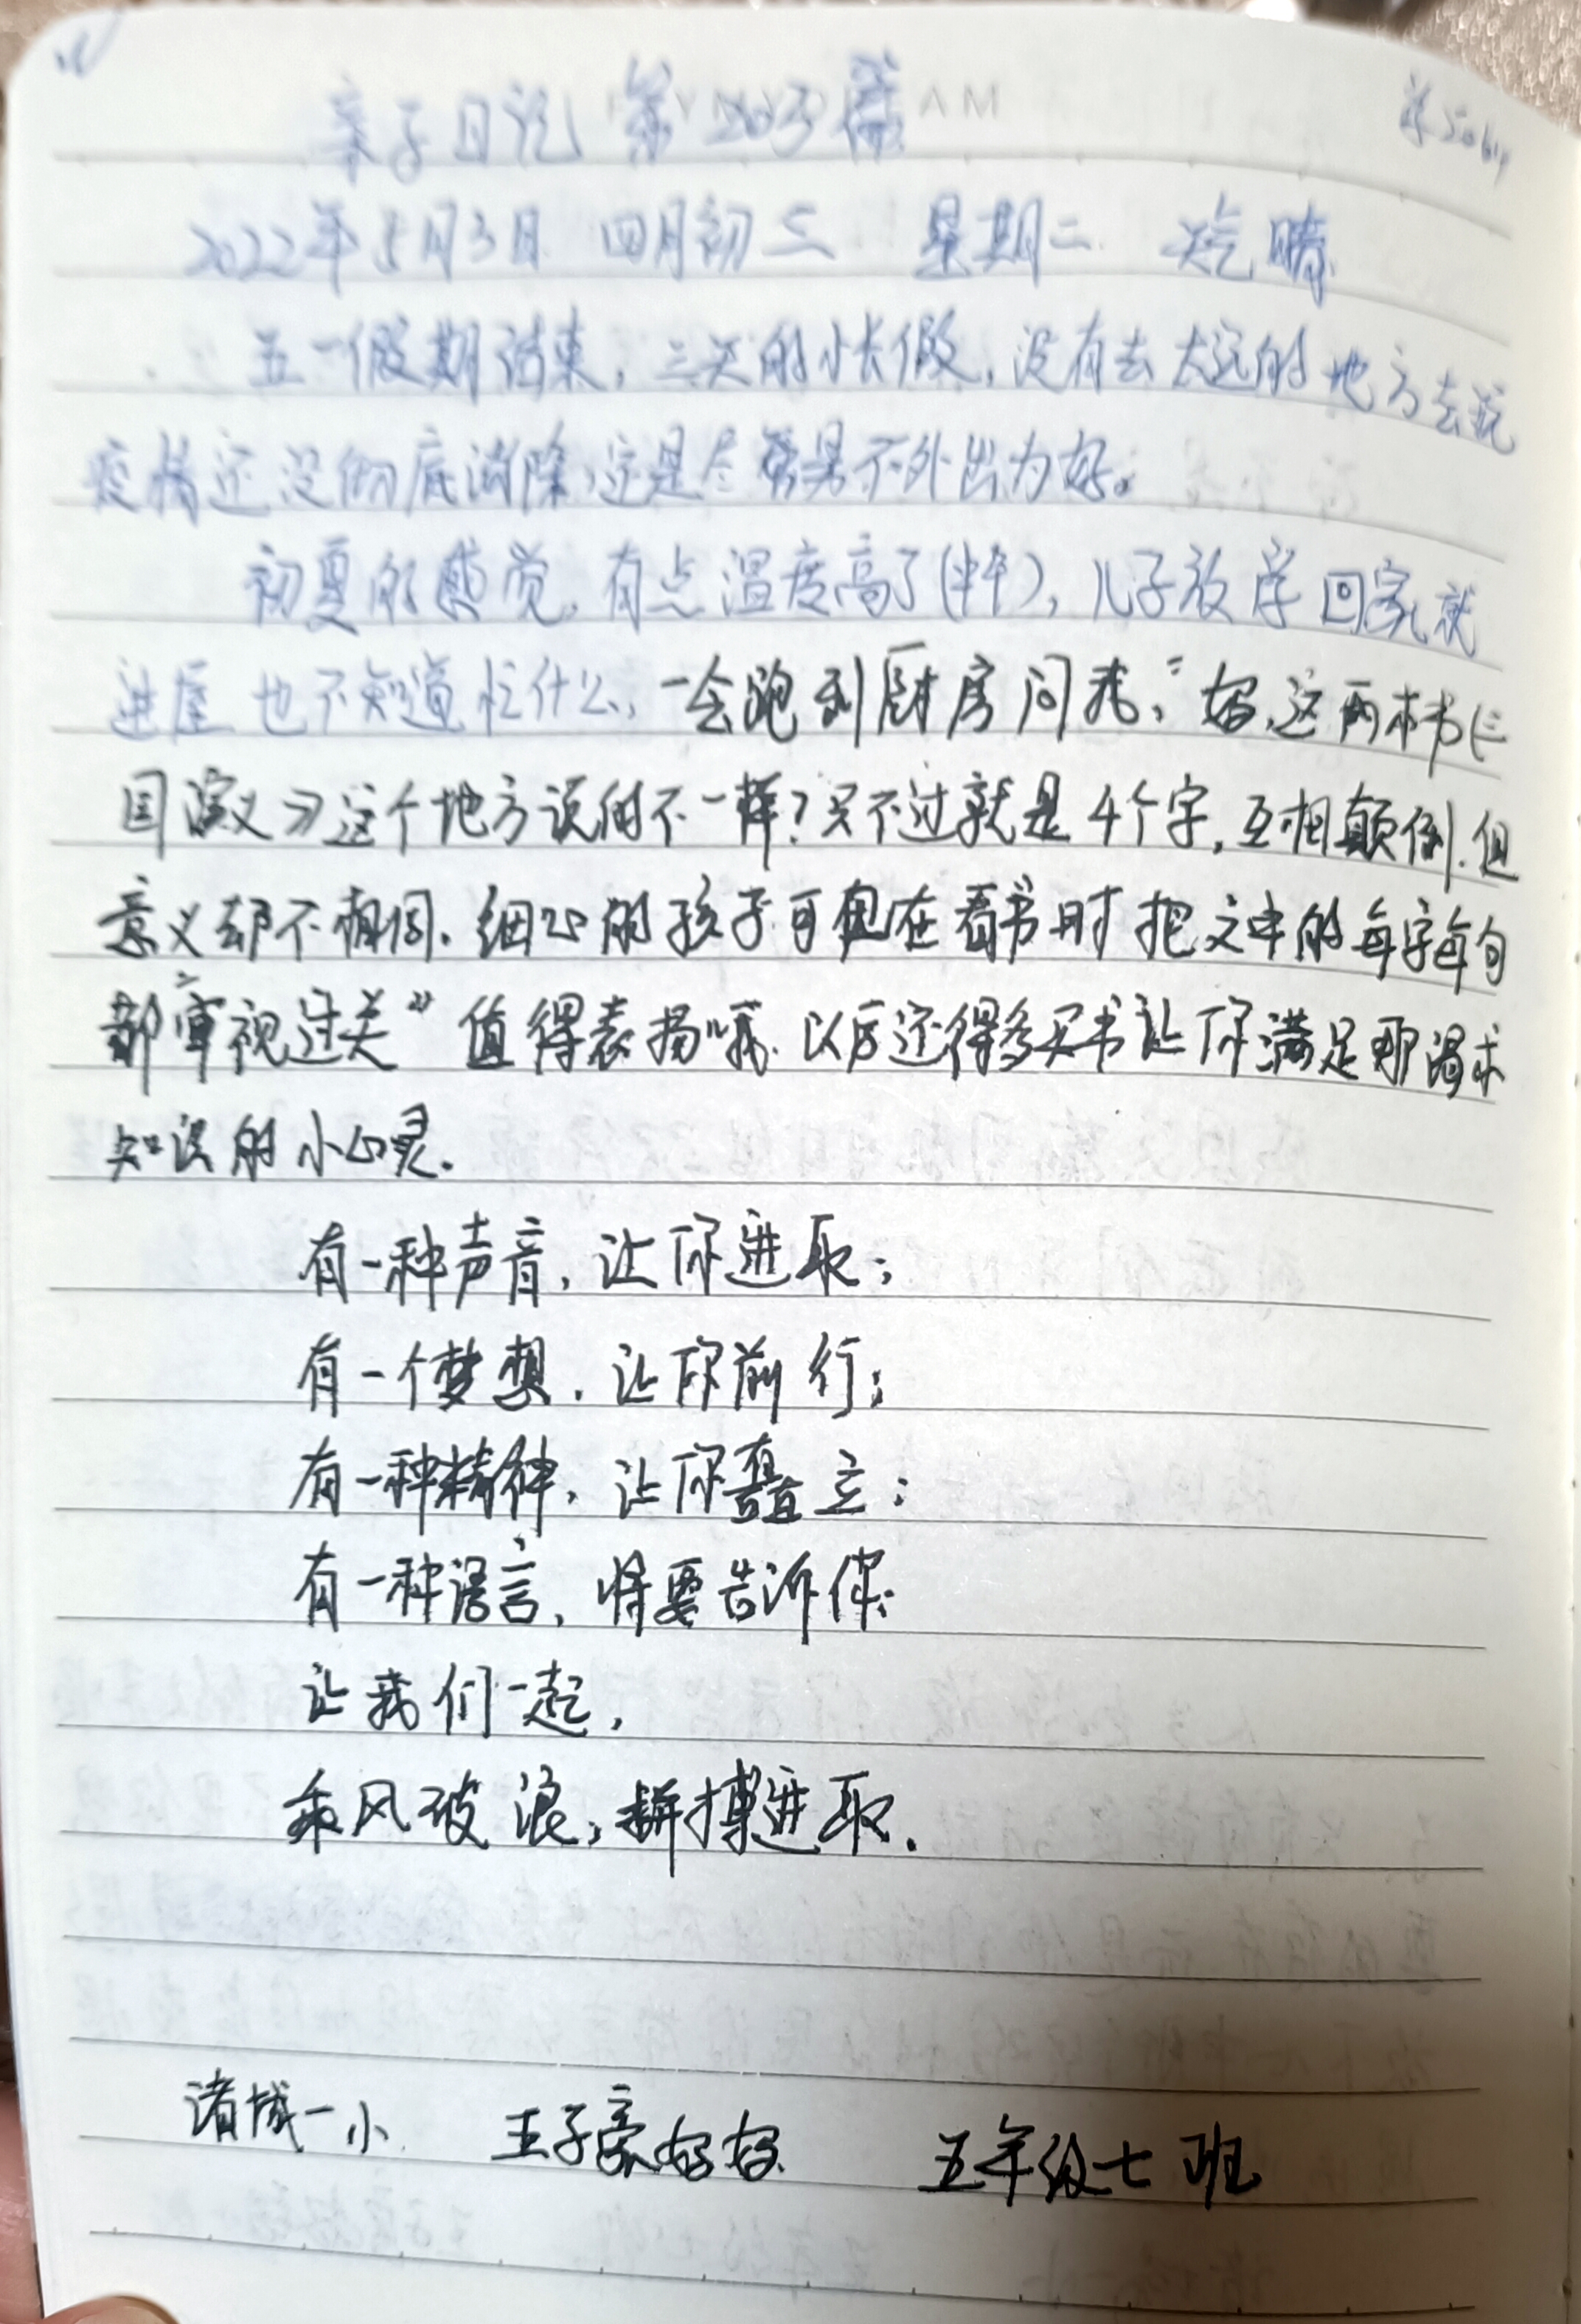 亲子日记 第203篇
2022年5月3日 四月初三 星期二 天气晴
五一假期结束，三天的小长假，没有去太远的地方去玩
疫情还没彻底消除，还是尽管男不外出为好。
初夏的感觉，有点温度高了(中午)，儿子放学回家就
进屋也不知道忙什么，一会跑到厨房问我，“妈，这两本书《三
国演义》这个地方说的不一样？只不过就是4个字，互相颠倒.但
意义却不相同.细心的孩子可真在看书时把文中的每字每句
都“审视过关”值得表扬哦.以后还得多买书让你满足那渴求
知识的小心灵.
有一种声音，让你进取；
有一个梦想.让你前行；
有一种精神，让你矗立；
有一种语言，将要告诉你：
让我们一起，
乘风破浪，拼搏进取.
诸城一小 王子豪妈妈 五年级七班